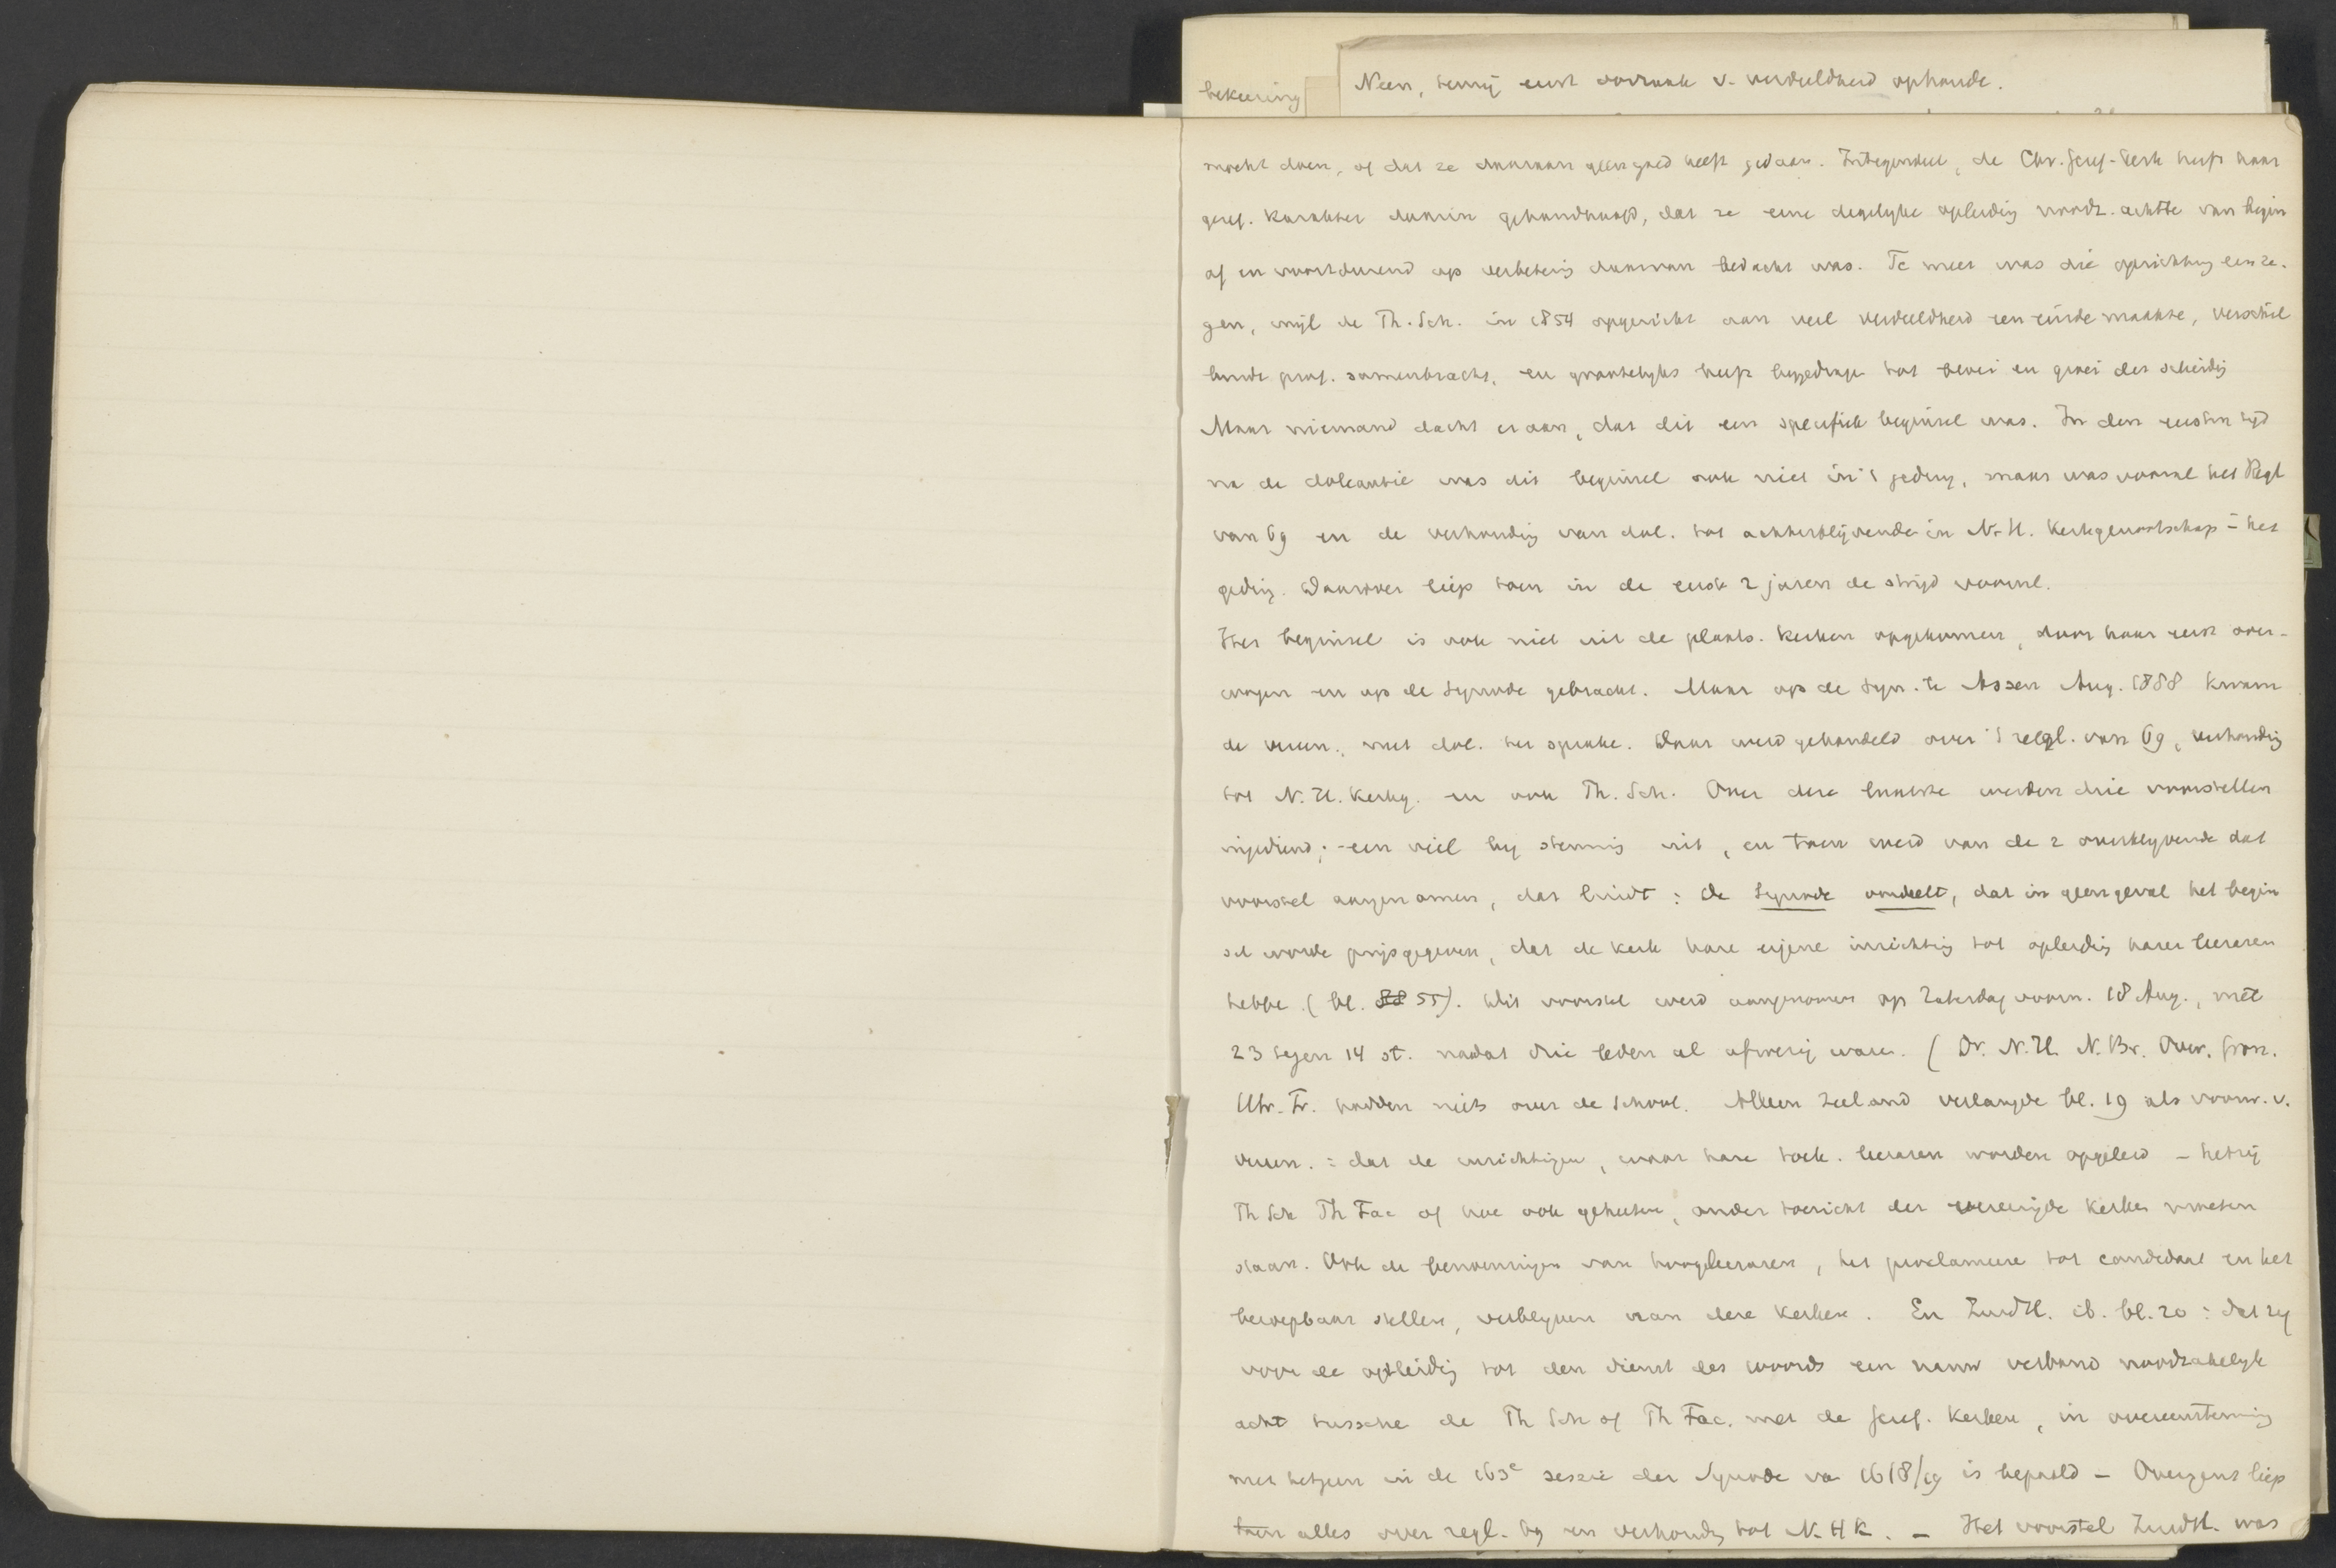 bekeering
Neen, tenzij eerst oorzaak v. verdeeldheid ophoude.
mocht doen, of dat ze daaraan geen goed heeft gedaan. Integendeel, de Chr. Geref. Kerk heeft haar
geref. karakter daarin gehandhaafd, dat ze eene degelyke opleiding noodz. achtte van begin
af en voortdurend op verbetering daarvan bedacht was. Te meer was die oprichting een ze-
gen, wijl de Th. Sch. in 1854 opgericht aan veel verdeeldheid een einde maakte, verschil
lende prof. samenbracht, en grootelyks heeft bygedrage tot bloei en groei der scheiding
Maar niemand dacht eraan, dat dit een specifiek beginsel was. In den eersten tyd
na de doleantie was dit beginsel ook niet in 't geding, maar was vooral het Regl
van 69 en de verhouding van dol. tot achterblijvende in N. H. Kerkgenootschap in het
geding. Daarover liep toen in de eerste 2 jaren de strijd vooral.
Het beginsel is ook niet uit de plaats. kerken opgekomen, door haar eerst over-
wogen en op de Synode gebracht. Maar op de Syn. te Assen Aug. 1888 kwam
de veren. met dol. ter sprake. Daar werd gehandeld over 't regl. van 69, verhouding
tot N. H. Kerkg. en ook Th. Sch. Over deze laatste werden drie voorstellen
ingediend; een viel by stemming uit, en toen werd van de 2 overblyvende dat
voorstel aangenomen, dat luidt: de Synode oordeelt, dat in geen geval het begin
sel worde prijsgegeven, dat de kerk hare eigene inrichting tot opleiding harer leeraren
hebbe (bl. 55). Dit voorstel werd aangenomen op Zaterdag voorm. 18 Aug., met
23 tegen 14 st. nadat drie leden al afwezig waren. (Dr. N.H. N.Br. Over. Gron.
Utr. Fr. hadden niets over de School. Alleen Zeeland verlangde bl. 19 als voorw. v.
veren.: dat de inrichtingen, waar hare toek. leeraren worden opgeleid - hetzij
Th Sch Th Fac of hoe ook geheeten, onder toezicht der vereenigde kerken moeten
staan. Ook de benoemingen van hoogleeraren, het proclameere tot candidaat en het
beroepbaar stellen, verblyven aan deze kerken. En ZuidH. ib. bl. 20: dat zy
voor de opleiding tot den dienst des woords een nauw verband noodzakelyk
acht tussche de Th Sch of Th Fac. met de Geref. Kerken, in overeenstemming
met hetgeen in de 163e sessie der Synode va 1618/19 is bepaald - Overigens liep
toen alles over regl. 69 en verhouding tot N. H K. - Het voorstel ZuidH. was